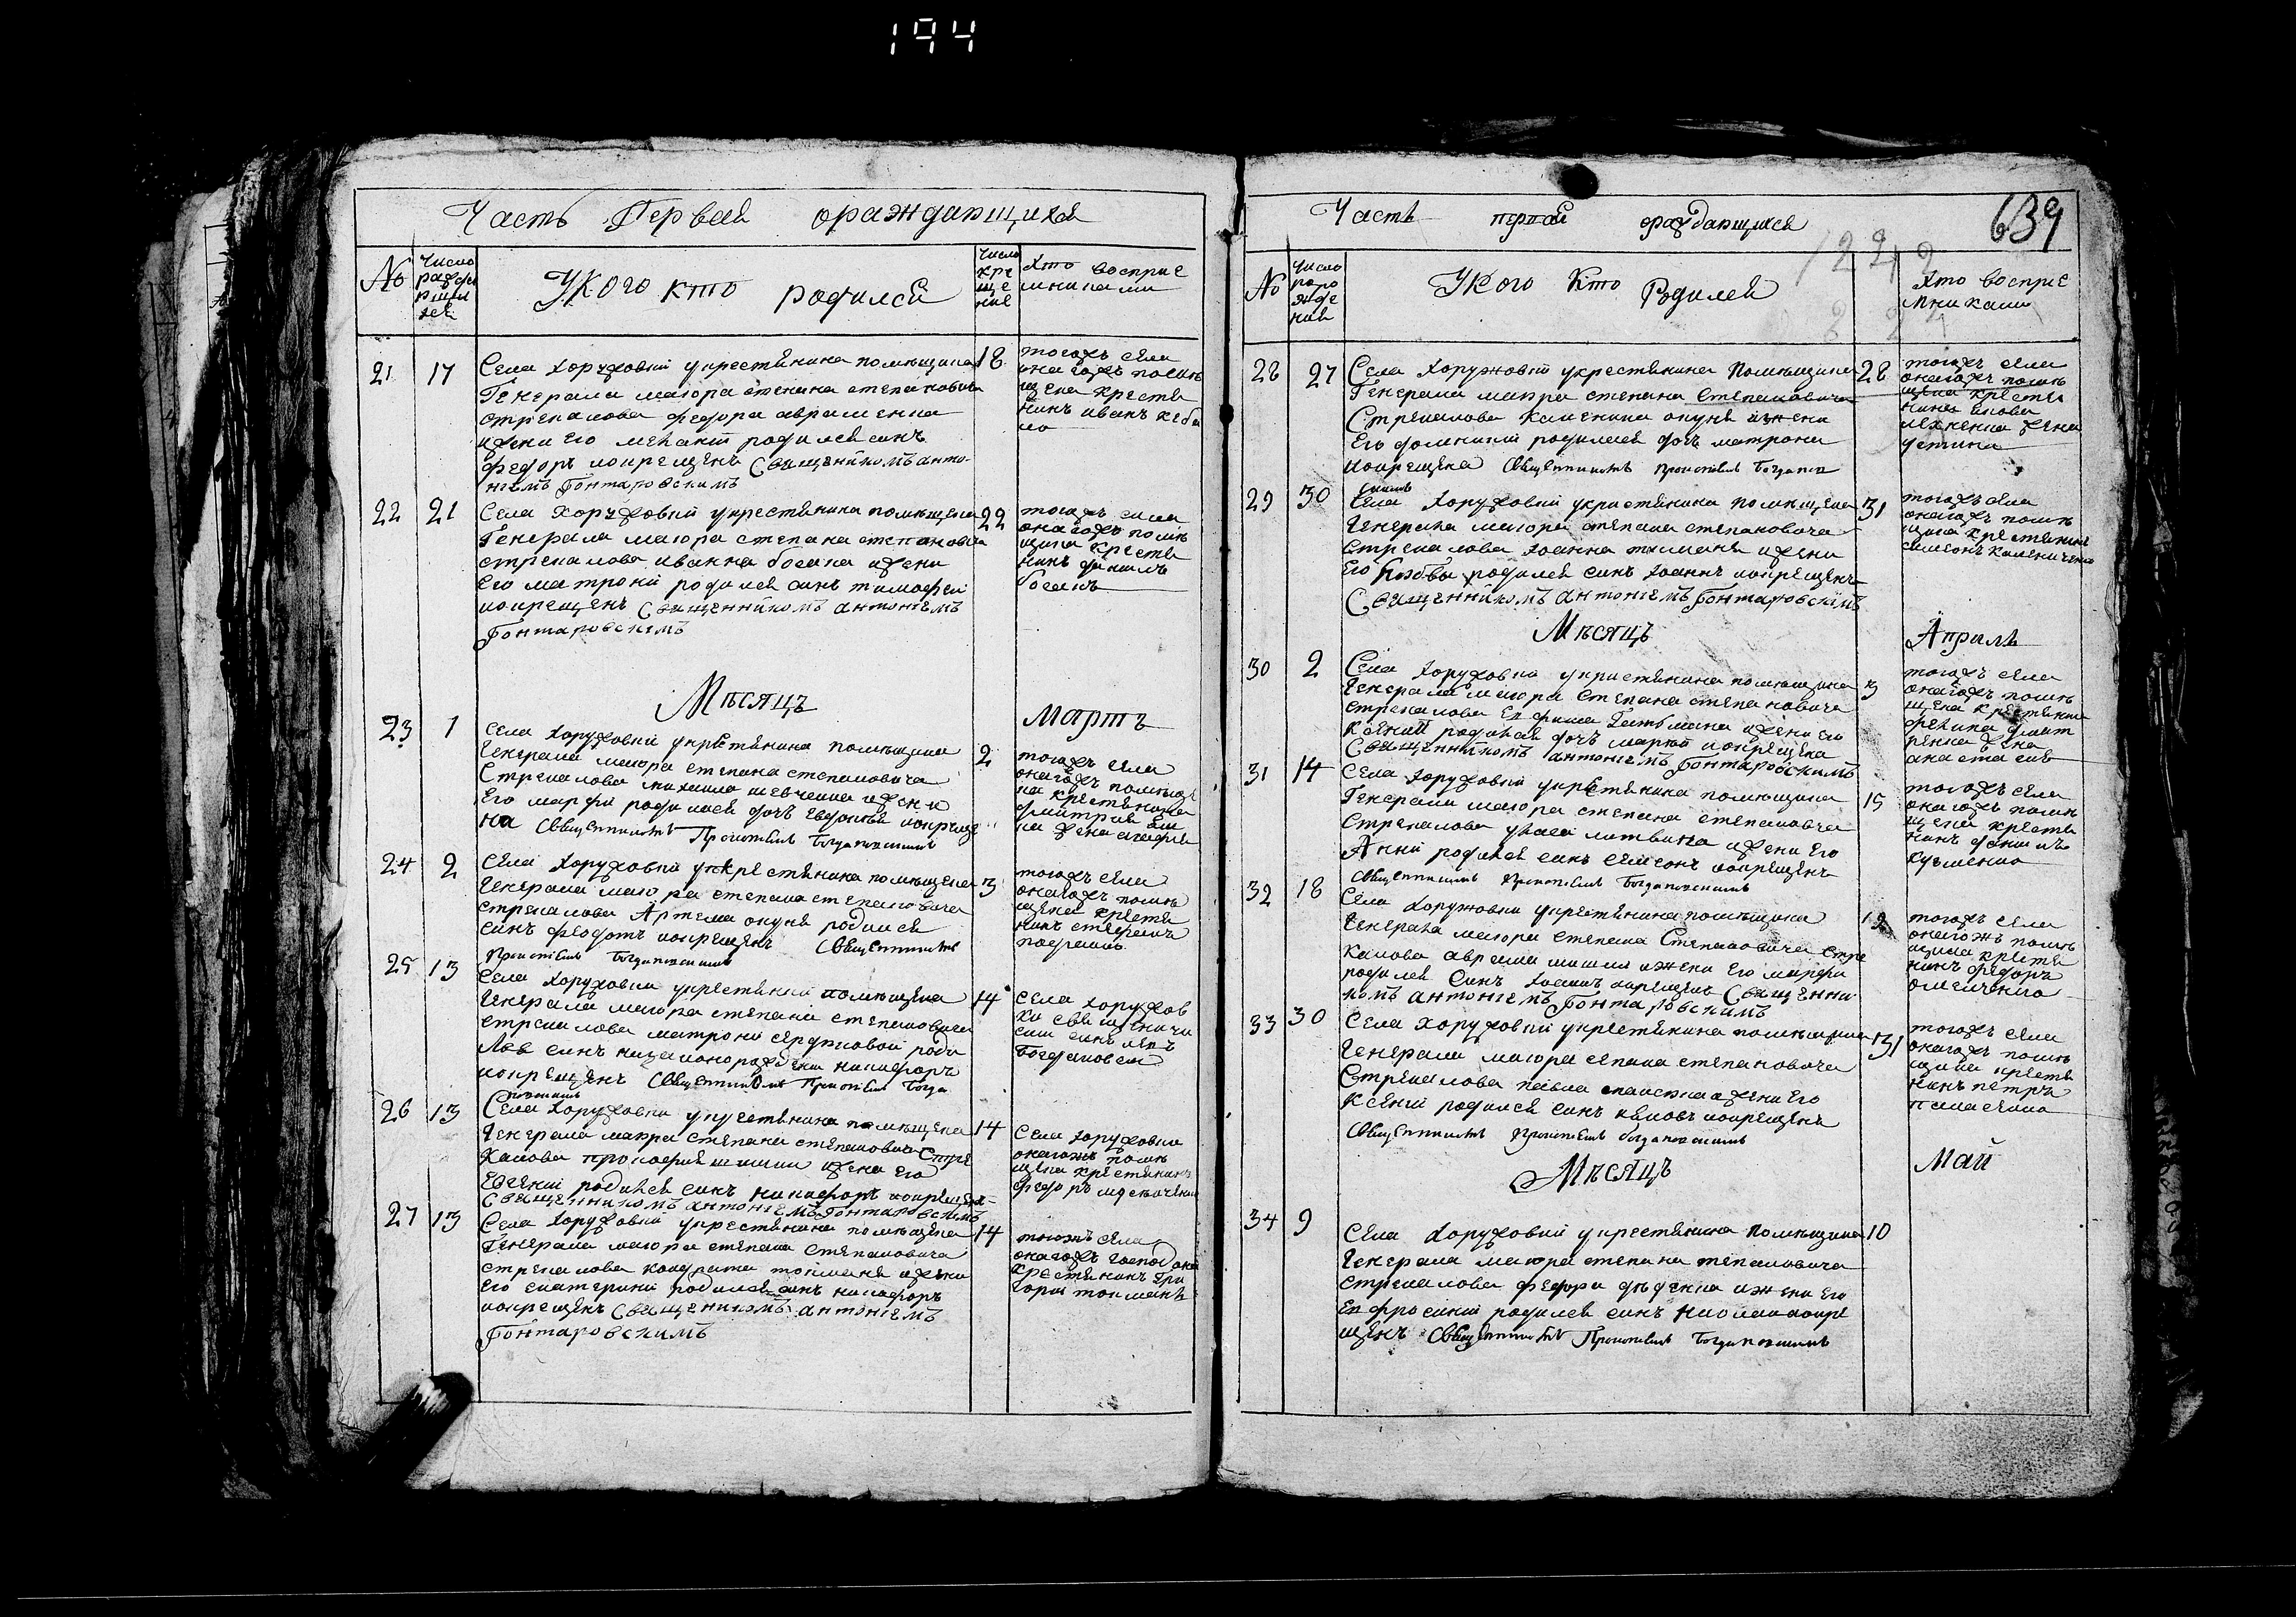 194
Часть Первая ораждающихся
№
Число
У кого кто родился
Число
кре
ще
ние
Кто восприе
мниками
21 17 Села Хоружовки укрестянина помѣщика 18
Генерала маіора степана степановича
стрекалова федора авраменка
ижени его
родился синъ
федоръ иокрещенъ Священникомъ анто-
ніемъ Гонтаровскимъ
тогожъ села
онагожъ помѣ
щика крестя
нинъ иванъ
22 21 Села Хоружовки укрестянина помѣщика 22
Генерала маіора степана степановича
стрекалова иванна босака ижени
его матрони родился синъ тимофей
иокрещенъ Священникомъ антоніемъ
Гонтаровскимъ
тогожъ села
онагожъ помѣ
щика крестя
нинъ данилъ
босакъ
Мѣсяцъ
Мартъ
23 1 Села Хоружовки укрестянина помѣщика 2
Генерала маіора степана степановича
Стрекалова михаила шевченка ижени
его марфи родилася дочъ евдокія иокреще
на Священникомъ Прокопіемъ Богдановскимъ
тогожъ села
онагожъ помѣщи
ка крестянина
дмитрия
жена
24 2 Села Хоружовки укрестянина помѣщика 3
Генерала маіора степана степановича
стрекалова Артема окуня родился
синъ феодотъ иокрещенъ Священникомъ
Прокопіемъ Богдановскимъ
тогожъ села
онагожъ помѣ
щика крестя
нинъ
25 13 Села Хоружовки укрестянки помѣщика 14
Генерала маіора степана степановича
стрекалова матрони сердюковой роди
лся синъ незаконорожденъ никифоръ
иокрещенъ Священникомъ Прокопіемъ Богда
новскимъ
Села Хоружов
ки священичи
синъ
Богдановски
26 13 Села Хоружовки укрестянина помѣщика 14
Генерала маіора степана степановича Стре
калова прокофия шишки жени его
Евгеніи родился синъ никифоръ иокрещенъ
Священникомъ антоніемъ Гонтаровскимъ
Села Хоружовки
онагожъ помѣ
щика крестянинъ
федоръ
27 13 Села Хоружовки укрестянина помѣщика 14
Генерала маіора степана степановича
стрекалова кондрата токмана ижени
его екатерини родился синъ никифоръ
иокрещенъ Священникомъ антоніемъ
Гонтаровскимъ
тогожъ села
онагожъ господина
крестянинъ Гри
горій токманъ
Часть первая ораждающихся
639
№
Число
рожде
ния
У кого Кто Родился
Кто восприе
мниками
28 27 Села Хоружовки укрестянина Помѣщика 28
Генерала маіора степана Степановича
Стрекалова окуня ижени
Его домникіи родилася дочъ матрона
иокрещена Священникомъ Прокопіемъ Богданов
скимъ
тогожъ села
онагожъ помѣ
щика крестя
нина якова
жена
устина
29 30 Села Хоружовки укрестянина помѣщика 31
Генерала маіора степана степановича
Стрекалова Іоанна токмана ижени
Его родился синъ Іоаннъ иокрещенъ
Священникомъ антоніемъ Гонтаровскимъ
тогожъ села
онагожъ помѣ
щика крестянинъ
симеонъ калениченко
Мѣсяцъ
Апрѣль
30 2 Села Хоружовки укрестянина помѣщика 3
Генерала маіора Степана степановича
стрекалова Ефима Гетмана ижени его
Ксеніи родилася дочъ марія иокрещена
Священникомъ антоніемъ Гонтаровскимъ
тогожъ села
онагожъ помѣ
щика крестянина
жена
анастасія
31 14 Села Хоружовки укрестянина помѣщика 15
Генерала маіора степана степановича
Стрекалова литвина ижени Его
Анни родился синъ симеонъ иокрещенъ
Священникомъ Прокопіемъ Богдановскимъ
тогожъ села
онагожъ помѣ
щика крестя
нинъ данилъ
кузменко
32 18 Села Хоружовки укрестянина помѣщика 19
Генерала маіора степана Степановича стре
калова аврама ижени его марфи
родился Синъ Іоаннъ иокрещенъ Священни
комъ антоніемъ Гонтаровскимъ
тогожъ села
онагожъ помѣ
щика крестя
нинъ федоръ
омелченко
33 30 Села Хоружовки укрестянина помѣщика 31
Генерала маіора степана степановича
Стрекалова павла ижени его
Ксеніи родился синъ иаковъ иокрещенъ
Священникомъ Прокопіемъ Богдановскимъ
тогожъ села
онагожъ помѣ
щика крестя
нинъ петръ
Мѣсяцъ
Май
34 9 Села Хоружовки укрестянина Помѣщика 10
Генерала маіора степана степановича
Стрекалова федора дѣденка ижени его
Ефросиніи родился синъ николай иокре
щенъ Священникомъ Прокопіемъ Богдановскимъ